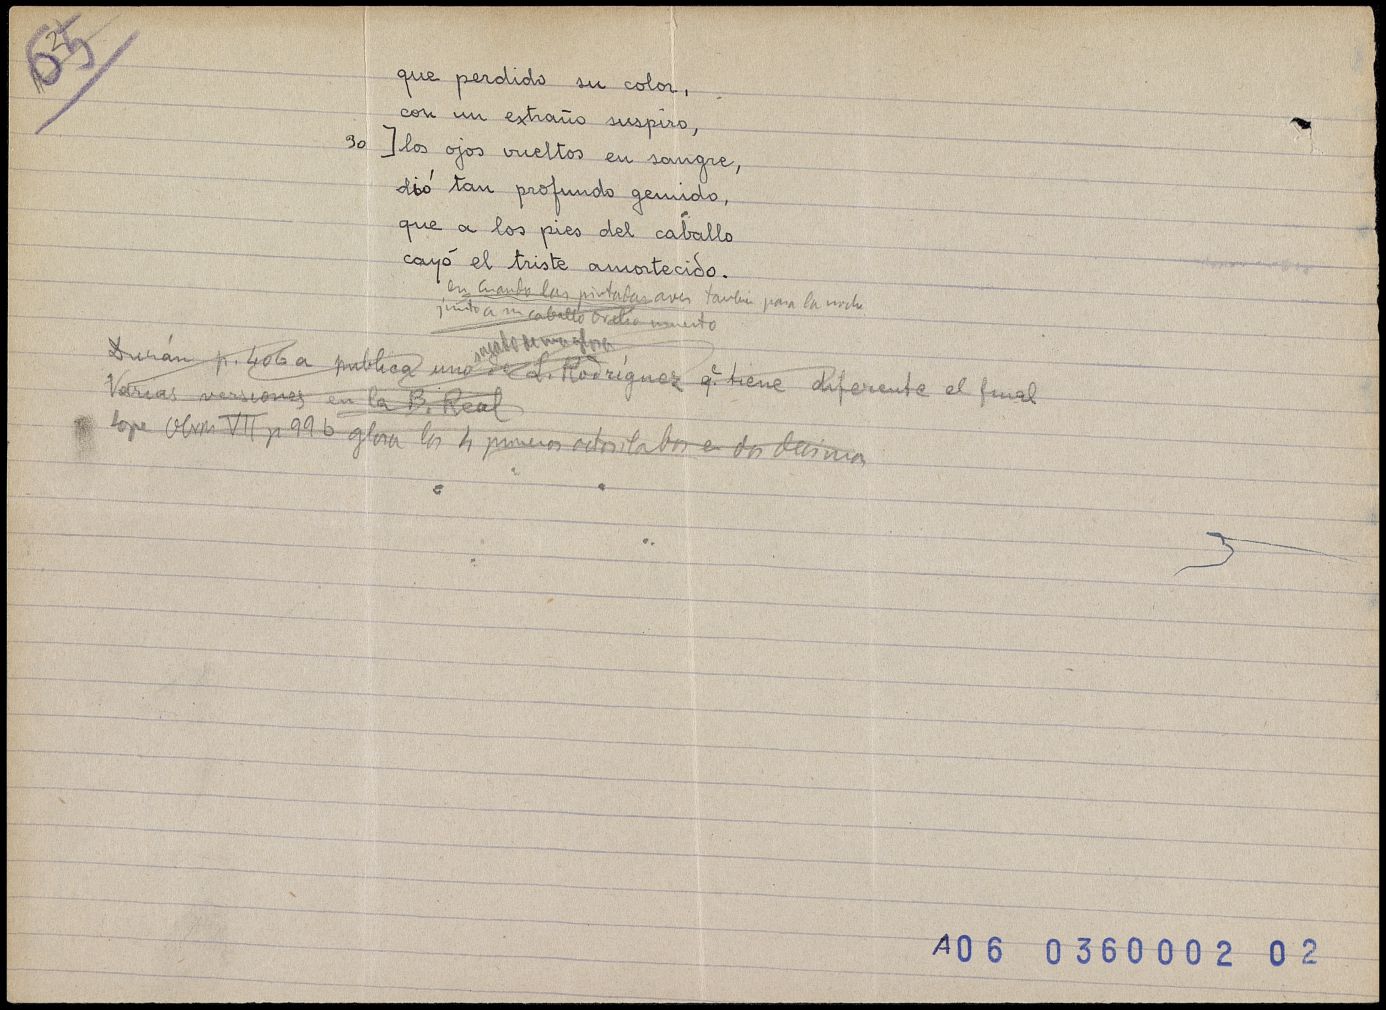 que perdido su color,
con un extraño suspiro,
30 ] los ojos vueltos en sangre,
dió tan profundo gemido,
que a los pies del caballo
cayó el triste amortecido.
en Cuando las pintadas aves tambien para la noche
junto a su caballo muerto
sacado de una glosa
Durán p. 406 a publica uno de L. Rodríguez q.e tiene diferente el final
Varias versiones en la B. Real
Lope Obras VII p 99 b glosa los 4 primeros octosilabos en dos decimas
A06 0360002 02